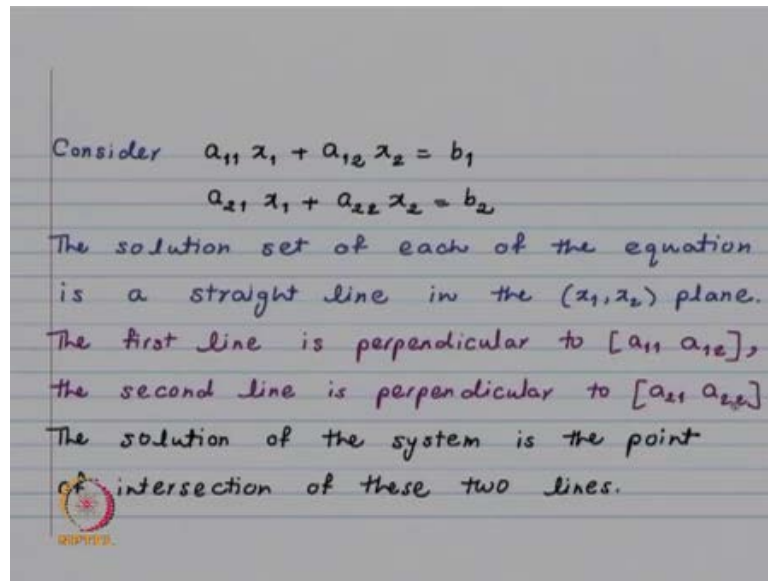 Consider a₁₁ x₁ + a₁₂ x₂ = b₁
a₂₁ x₁ + a₂₂ x₂ = b₂
The solution set of each of the equation
is a straight line in the (x₁, x₂) plane.
The first line is perpendicular to [a₁₁ a₁₂],
the second line is perpendicular to [a₂₁ a₂₂]
The solution of the system is the point
of intersection of these two lines.
NPTEL